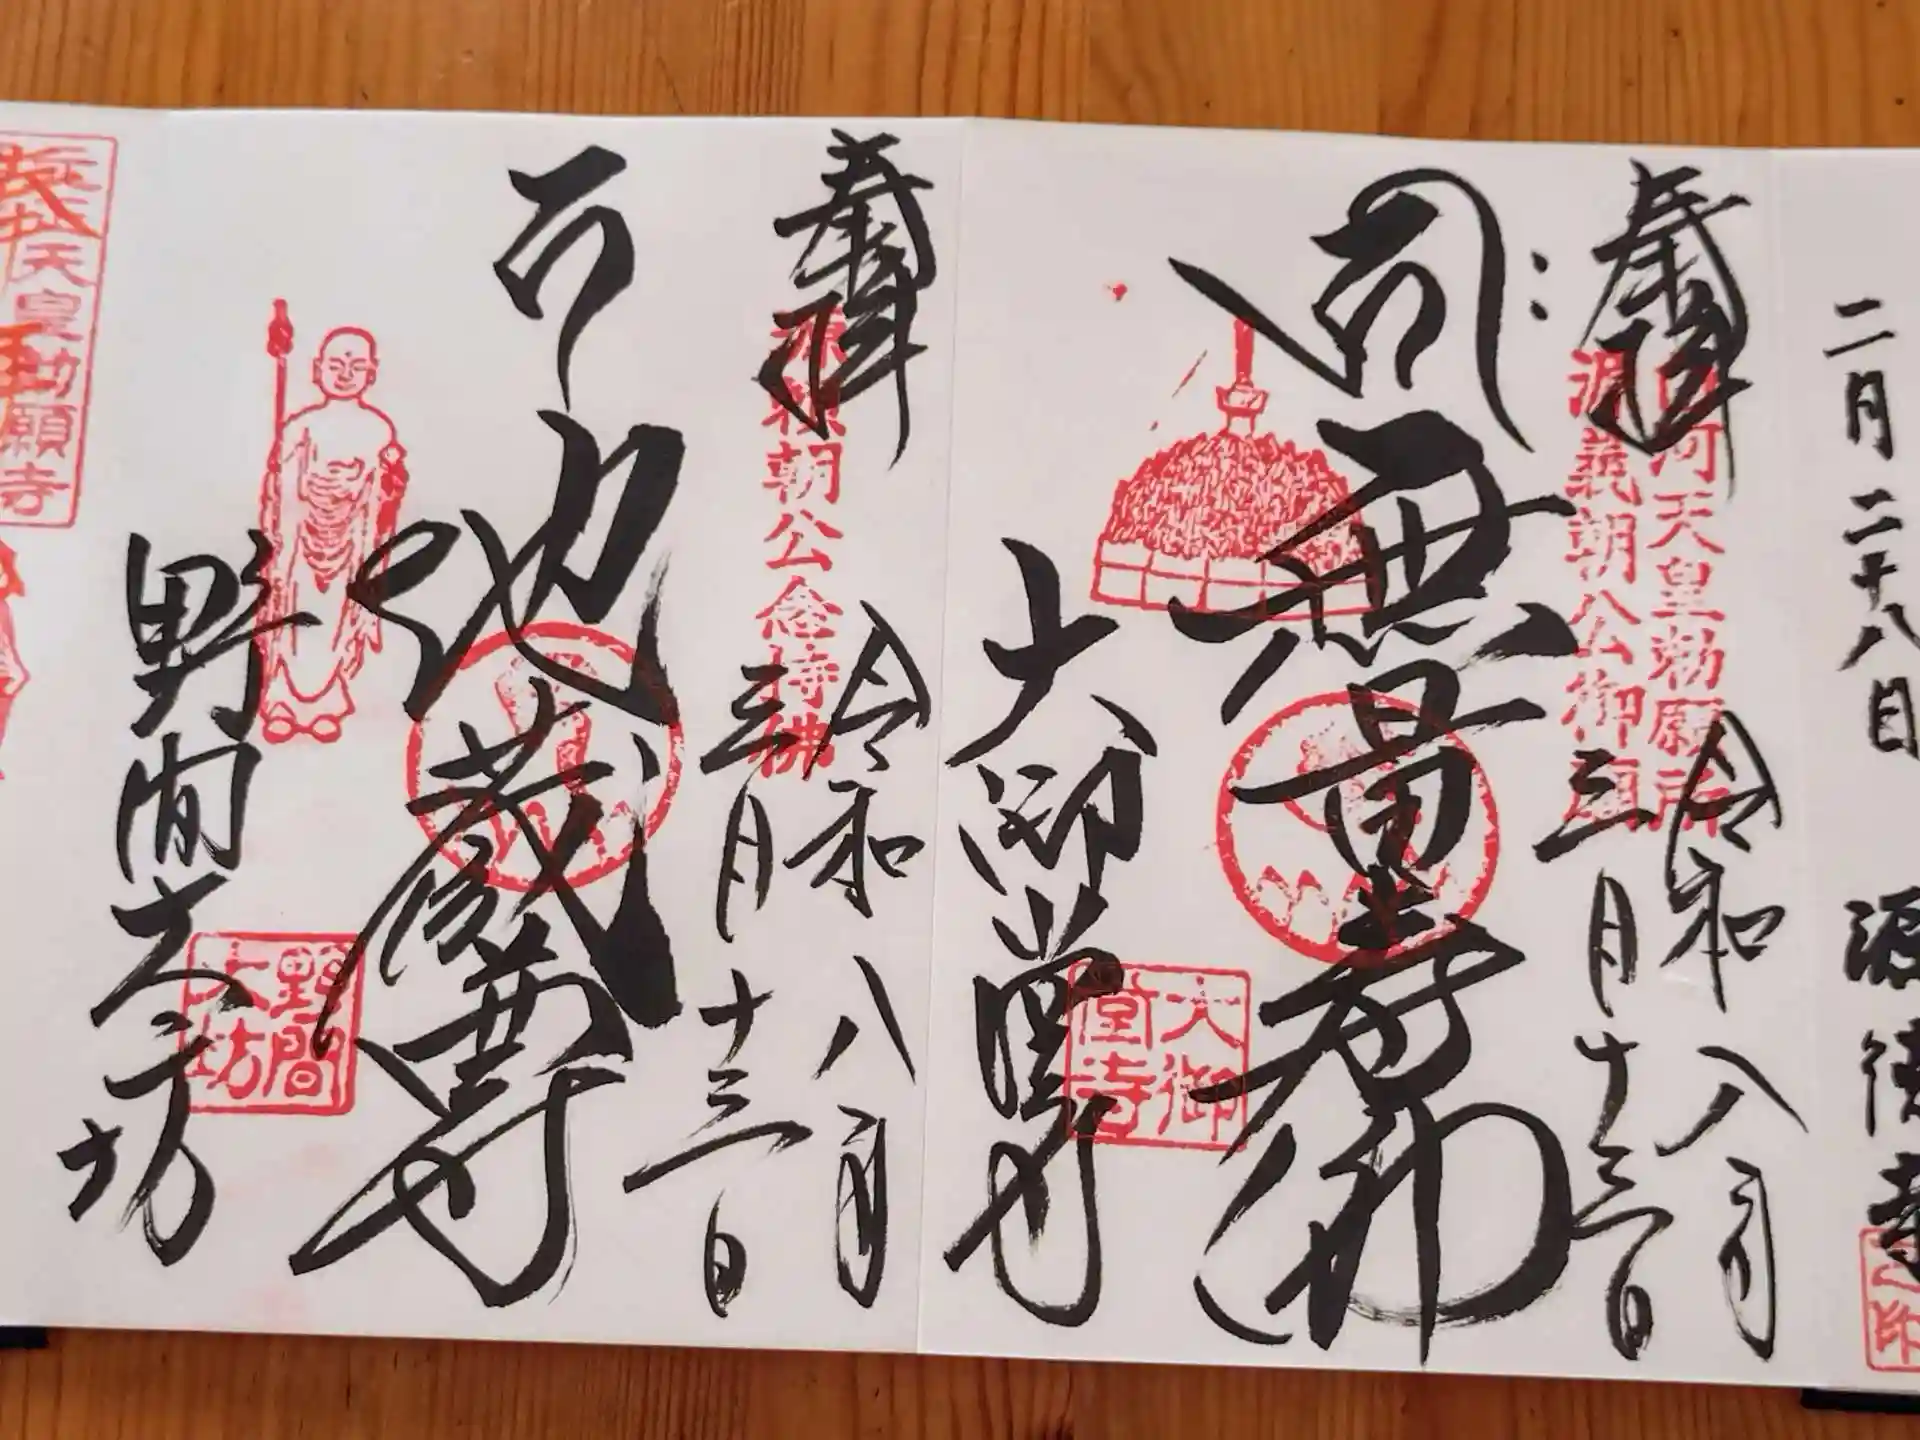 二月二十八日
源徳寺
奉拝
河天皇勅願所
源義朝公御廟
令和八月
三月十三日
無量寿佛
大御堂寺
大御堂寺
奉拝
源頼朝公念持佛
令和八月
三月十三日
地蔵尊
野間大坊
野間大坊
天皇勅願寺